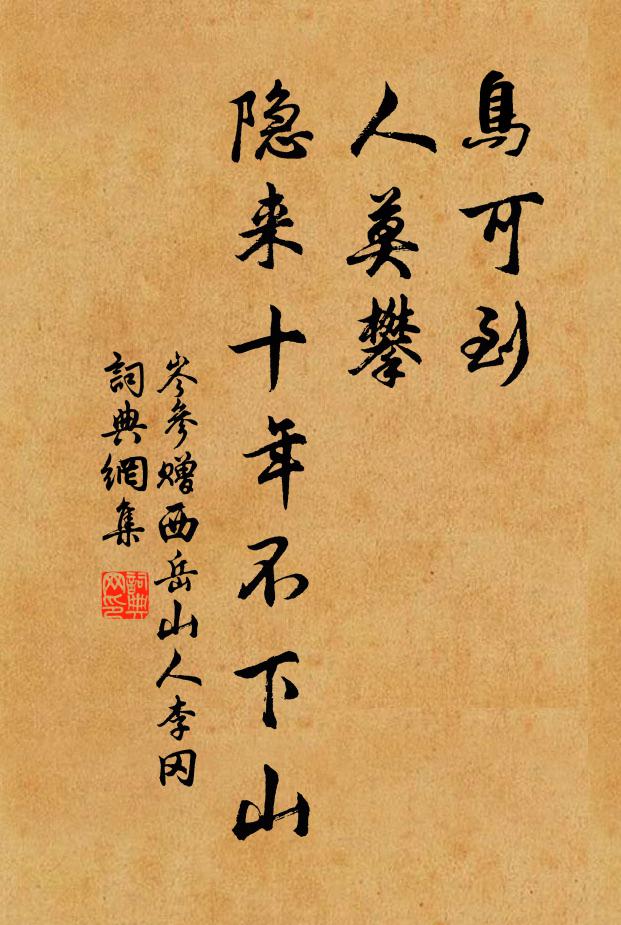 鳥可到
人莫攀
隐来十年不下山
岑參贈西岳山人李冈
詞典網集
詞典
网印